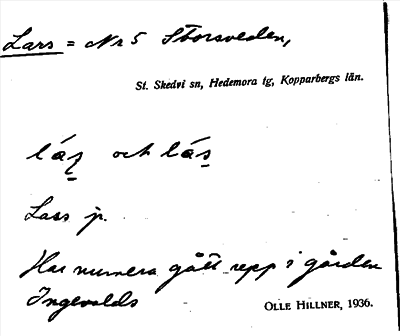 Lars = Nr 5 Storsveden,
St. Skedvi sn, Hedemora tg, Kopparbergs län.
láʒ̱ och lás̱
Lass jr.
Har numera gått upp i gården
Ingevalds
OLLE HILLNER, 1936.